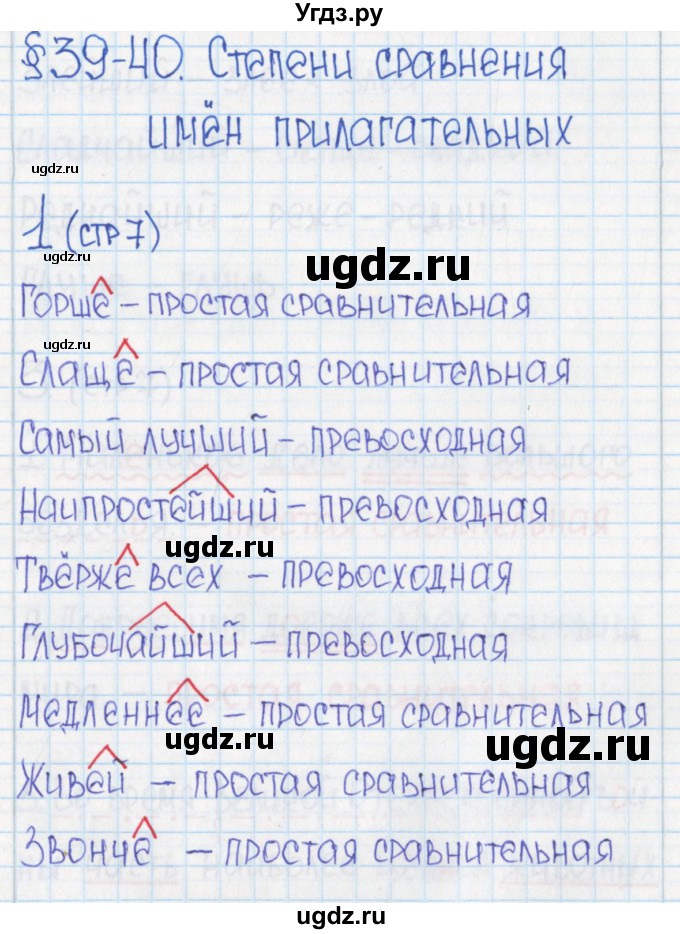 Угдз.ру
§39-40. Степени сравнения
имён прилагательных
ugdz.ru
1 (стр 7)
ugdz.ru
Горше – простая сравнительная
ugdz.ru
Слаще – простая сравнительная
Самый лучший – превосходная
Наипростейший – превосходная
ugdz.ru
Твёрже всех – превосходная
Глубочайший – превосходная
Медленнее – простая сравнительная
ugdz.ru
ugdz.ru
Живей – простая сравнительная
Звонче – простая сравнительная
ugdz.ru
ugdz.ru